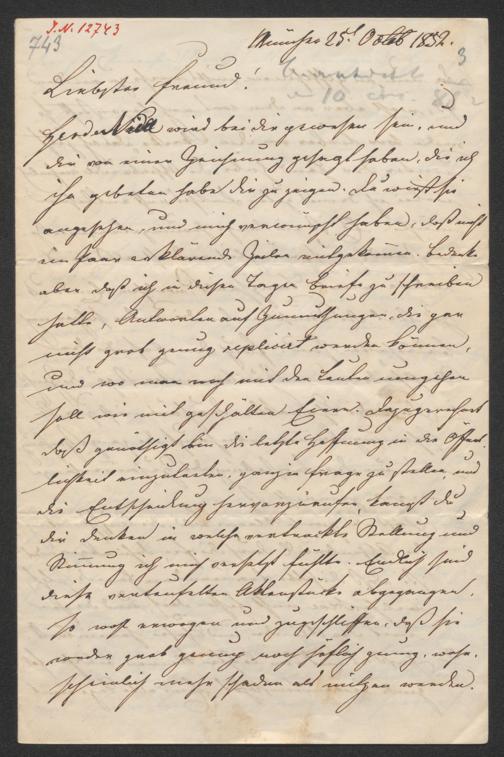 J.N. 12743
743
München 25t Octob 1852.
3
beantwortet
10
Liebster Freund!
wird bei dir gewesen sein, und
dir von einer Zeichnung gesagt haben, die ich
ihn gebeten habe dir zu zeigen. Du wirst sie
angesehen, und mich verwünscht haben, daß nicht
ein Paar erklärende Zeilen mitgekommen. Bedenke
aber daß ich in diesen Tagen Briefe zu schreiben
hatte, Antworten auf Zumuthungen, die gar
nicht grob genug replicirt werden können,
und wo man noch mit den Leuten umgehen
soll wie mit geschälten Eiern. Dazu gerechnet
daß genöthigt bin die letzte Hoffnung in der Öffent-
lichkeit einzuleiten, ganze Frage zu stellen, und
die Entscheidung hervorzurufen, kannst du
dir denken in welche vertrackte Stellung und
Stimmung ich mich versetzt fühlte. Endlich sind
diese verteufelten Aktenstücke abgegangen,
so wohl erwogen und zugeschliffen, daß sie
weder grob genug noch höflich genug, wahr-
scheinlich mehr schaden als nützen werden.